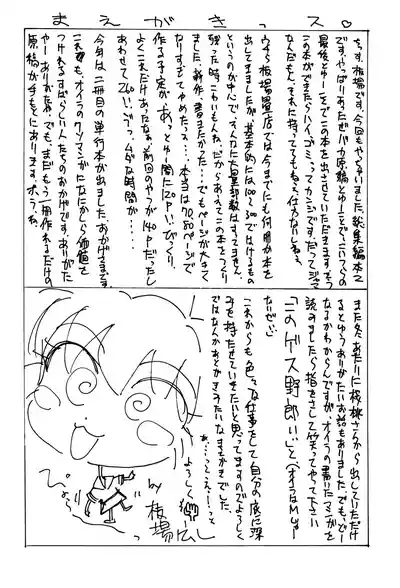 まえがきっス。
ちす、板場です。今回もやっちゃいました総集編本2
です。やっぱりあったぜバカ原稿とゆーことで、こいつらの
最後とゆーことでこの本を出させていただきます。そう
この本ができたらハイゴミってカンジです。だってジャマ
なんだもん。それに持っててもねえ、仕方ないしねぇ。
うちら板場畳店では今までにも何冊か本を
出してきましたが、基本的には100~300ではけるもの
というのが中心で、そんなに大量部数はすってません。
残った時こわいもんね。だからあえてこの本をつくり
ました。新作、書きたかった…でもページが大きく
なりすぎてやめたっス…。本当は70、80ページで
作る予定が、あっとゆー間に120P。いや、びっくり。
よくこれだけあったなぁ。前回のやつが140Pだったし
あわせて260!!ふーっ、ムダな時間が…。
今年は二冊目の単行本が出ました。おかげさまです。
これもオイラのクソマンガになにかしら価値を
つけれるすばらしい人たちのおかげです。ありがた
やーありがたや。でも、まだもう一冊作れるだけの
原稿が手もとにあります。ボラね。
また冬あたりに桜桃さんから出していただけ
るとゆうありがたいお話もありました。でも、どー
なるかわからんですが、オイラの書いたマンガを
読みましたら指をさして笑ってやって下さい
「このゲス野郎ぃぃ」と。(オイラはMじゃ
ないぜぃ)
これからも色々な仕事をして自分の底に深
みを持たせていきたいと思ってますのでよろしく
ではなんかあとがきみたいなまえがきでした。
あ…っスぇーっと
よろしく
ぴょろり
by 板場広し